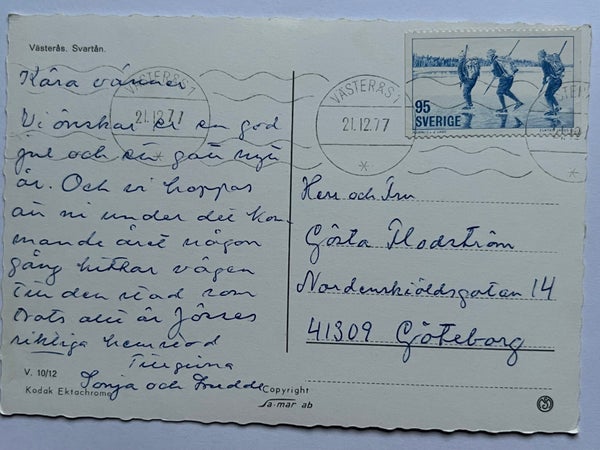 Västerås. Svartån.
Kära vänner
Vi önskar er en god
jul och ett gott nytt
år. Och vi hoppas
att ni under det kom-
mande året någon
gång hittar vägen
till den stad som
trots allt är
riktiga hemstad
Tillgivna
Sonja och
V. 10/12
Kodak Ektachrome
Copyright
Sa-mar ab
VÄSTERÅS 1
21.12.77
VÄSTERÅS 1
21.12.77
95
SVERIGE
Herr och Fru
Gösta Flodström
Nordenskiöldsgatan 14
41309 Göteborg